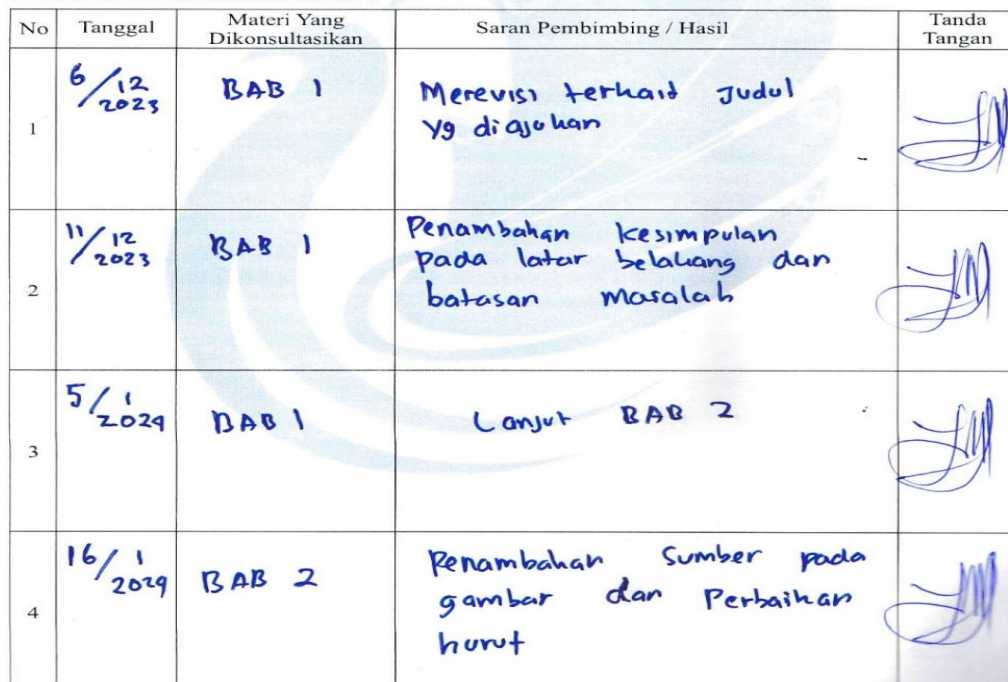 No Tanggal Materi Yang Dikonsultasikan Saran Pembimbing / Hasil Tanda Tangan
1 6/12 2023 BAB 1 Merevisi terkait Judul
yg diajukan
2 11/12 2023 BAB 1 Penambahan kesimpulan
pada latar belakang dan
batasan masalah
3 5/1 2024 BAB 1 Lanjut BAB 2
4 16/1 2024 BAB 2 Penambahan Sumber pada
gambar dan Perbaikan
huruf